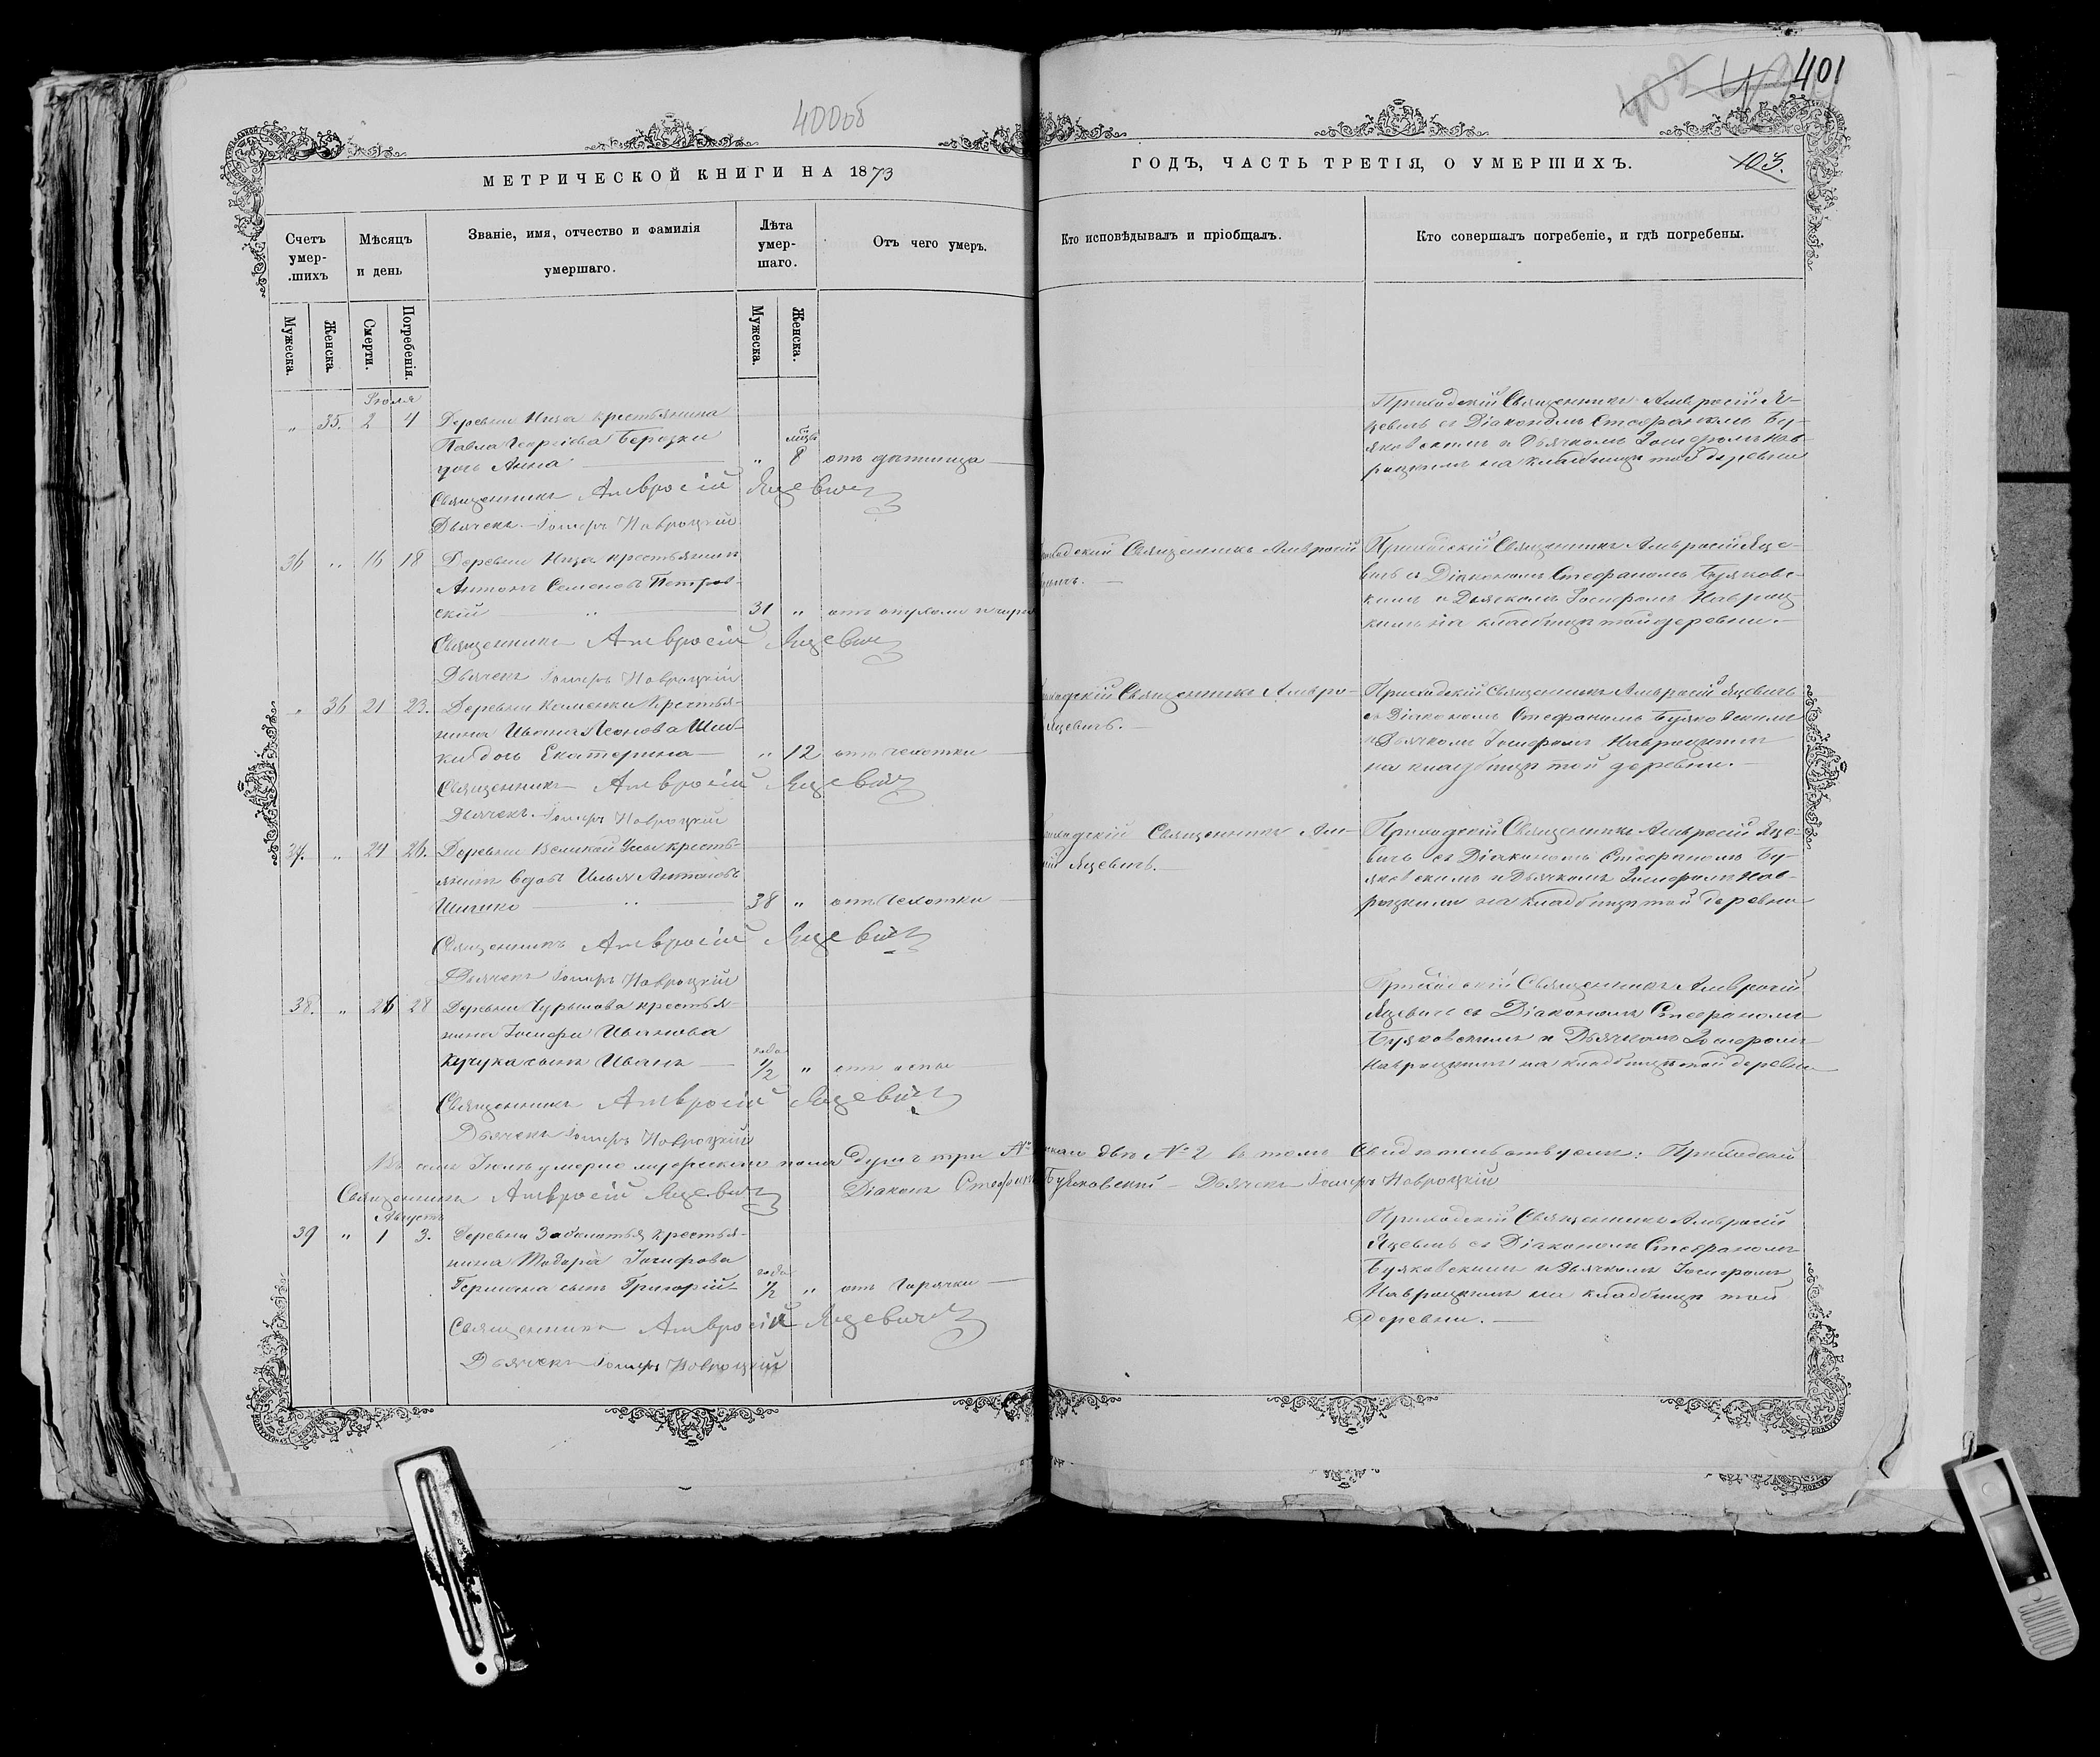 400об
401
МЕТРИЧЕСКОЙ КНИГИ НА 1873
ГОДЪ, ЧАСТЬ ТРЕТІЯ, О УМЕРШИХЪ.
103.
Счетъ умер-.шихъ
Мѣсяцъ и день
Званіе, имя, отчество и фамилія умершаго.
Лѣта умер-шаго.
Отъ чего умеръ.
Кто исповѣдывалъ и пріобщалъ.
Кто совершалъ погребеніе, и гдѣ погребены.
Мужеска.
Женска.
Смерти.
Погребенія.
Мужеска.
Женска.
Іюля
„ 35. 2 4 Деревни крестьянина
Павла Георгіева Березки
дочь Анна „ 8 отъ
Священникъ Амвросій Яцевичъ
Дьячекъ Іосифъ Навроцкій
Приходскій Священникъ Амвросій Я-
цевичъ съ Діакономъ Стефаномъ Бу-
яковскимъ и Дьячкомъ Іосифомъ Нав-
роцкимъ на кладбищѣ той деревни
36 „ 16 18 Деревни крестьянинъ
Антонъ Семеновъ Петров-
скій „ 31 „ отъ опухоли
Священникъ Амвросій Яцевичъ
Дьячекъ Іосифъ Навроцкій
Священникъ Амвросій
Приходскій Священникъ Амвросій Яце-
вичъ съ Діакономъ Стефаномъ Буяковс-
кимъ и Дьячкомъ Іосифомъ Навроц
кимъ на кладбищѣ той деревни.—
„ 36 21 23. Деревни Каменки Крестья-
нина Ивана Леонова
дочь Екатерина „ 12 отъ чахотки
Священникъ Амвросій Яцевичъ
Дьячекъ Іосифъ Навроцкій
Священникъ Амвро-
Яцевичъ.—
Приходскій Священникъ Амвросій Яцевичъ
съ Діакономъ Стефаномъ Буяковскимъ
и Дьячкомъ Іосифомъ Навроцкимъ
на кладбищѣ той деревни.—
37. „ 24 26. Деревни Великой крестья-
янинъ вдовъ Илья Антоновъ
Шишко „ 38 „ отъ чахотки
Священникъ Амвросій Яцевичъ
Дьячекъ Іосифъ Навроцкій
Священникъ Ам-
Яцевичъ.—
Приходскій Священникъ Амвросій Яце-
вичъ съ Діакономъ Стефаномъ Бу-
яковскимъ и Дьячкомъ Іосифомъ Нав-
роцкимъ на кладбищѣ той деревни
38. „ 26 28 Деревни крестья-
нина Іосифа Иванова
Кучука сынъ Иванъ года 1/2 „ отъ оспы
Священникъ Амвросій Яцевичъ
Дьячекъ Іосифъ Навроцкій
Приходскій Священникъ Амвросій
Яцевичъ съ Діакономъ Стефаномъ
Буяковскимъ и Дьячкомъ Іосифомъ
Навроцкимъ на кладбищѣ той деревни
умерло мужескаго пола душъ три № 2 въ томъ свидетельствуемъ: Приходскій
Священникъ Амвросій Яцевичъ Діаконъ Стефанъ Буяковскій — Дьячекъ Іосифъ Навроцкій
Августъ
39 „ 1 3. Деревни Заболотья крестья-
нина Тодора Іосифова
Германа сынъ Григорій года 1/2 „ отъ горячки
Священникъ Амвросій Яцевичъ
Дьячекъ Іосифъ Навроцкій
Приходскій Священникъ Амвросій
Яцевичъ съ Діакономъ Стефаномъ
Буяковскимъ и Дьячкомъ Іосифомъ
Навроцкимъ на кладбищѣ той
деревни.—